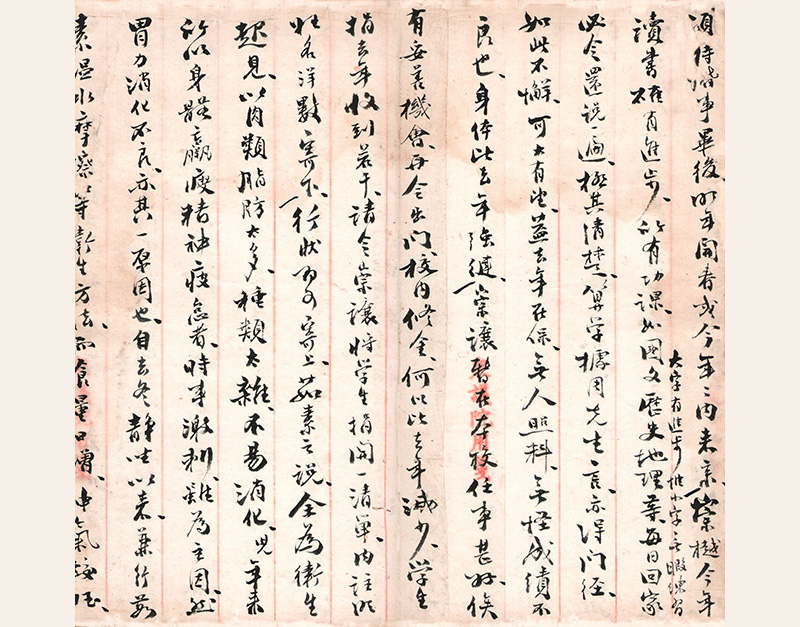 須待婚事畢後明年開春或今年之內來京崇樾今年
讀書頗有進步所有功課如國文歷史地理等每日回家
大字有進步惟小字無暇練習
必令還說一遍極其清楚算學據周先生言亦得門徑
如此不懈可大有望蓋去年在保無人照料無怪成績不
良也身体比去年強健崇讓暫在本校任事甚好俟
有妥善機會再令出門校內修金何以比去年減少學生
捐去年收到若干請令崇讓將學生捐開一清單內註明
姓名洋數寄下行狀不必寄上茹素之說全為衛生
起見以肉類脂肪太多種類太雜不易消化兒年來
所以身體羸瘦精神疲怠者時事激刺雖為主因然
胃力消化不良亦其一原因也自去冬靜坐以來兼行茹
素温水摩擦等衛生方法而食量日增中氣按